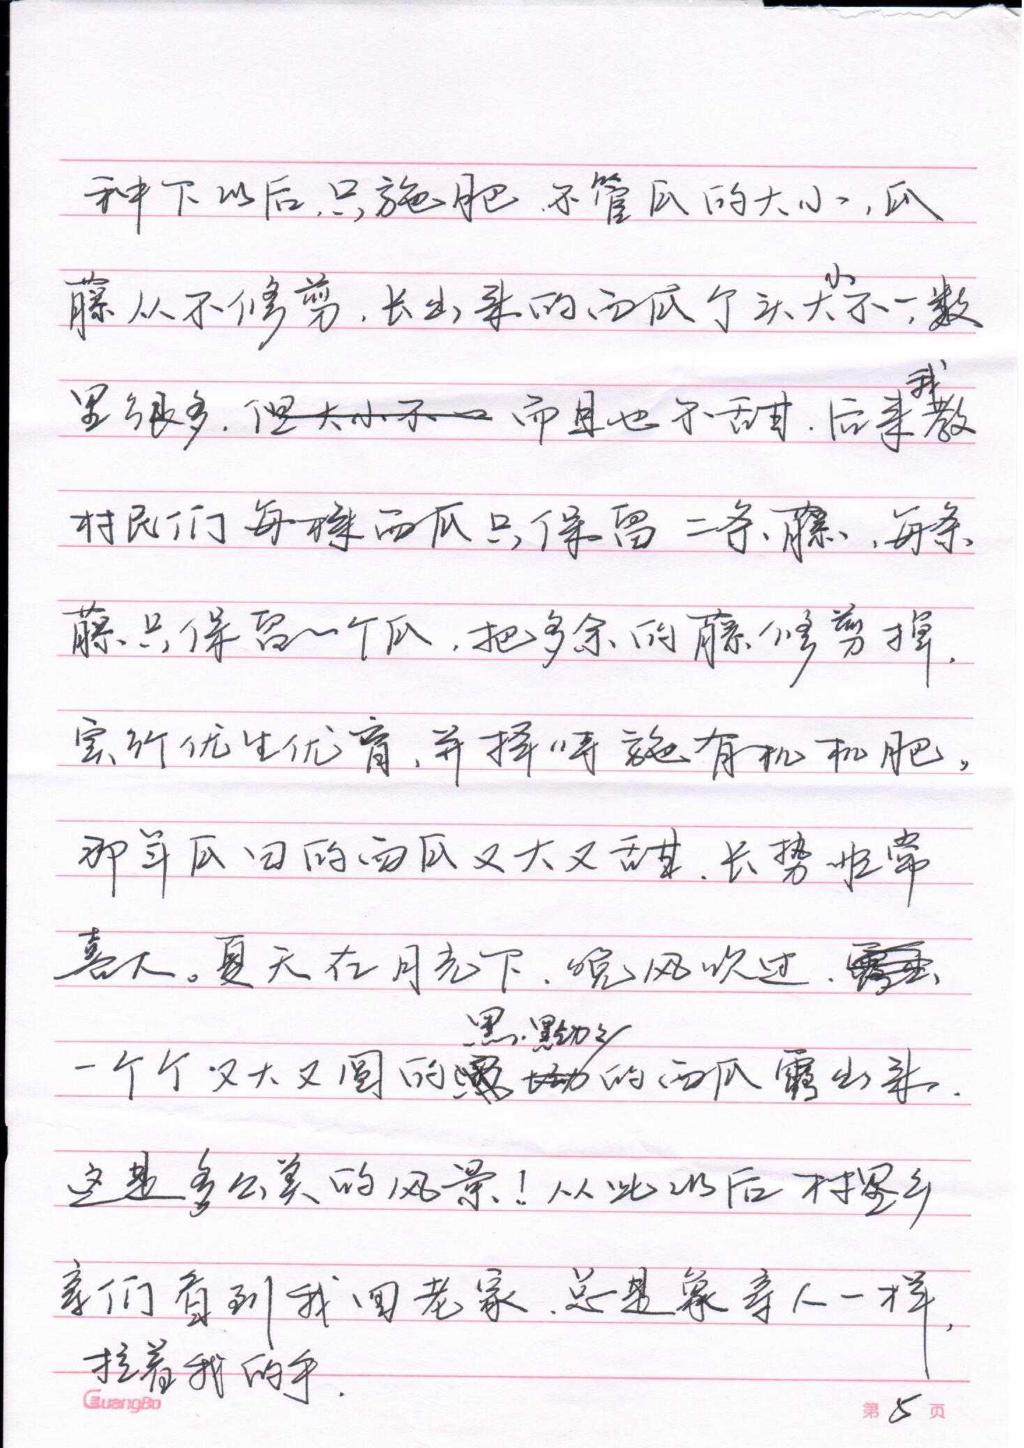 种下以后,只施肥,不管瓜的大小,瓜
藤从不修剪,长出来的西瓜个头大小不一,数
量很多,但大小不一而且也不甜.后来我教
村民们每棵西瓜只保留二条藤,每条
藤只保留一个瓜,把多余的藤修剪掉,
实行优生优育,并择时施有机肥,
那年瓜田的西瓜又大又甜,长势非常
喜人。夏天在月光下,晚风吹过,
一个个又大又圆的黑黝黝的西瓜露出来.
这是多么美的风景!从此以后村里乡
亲们看到我回老家,总是象亲人一样,
拉着我的手.
GuangBo
第5页